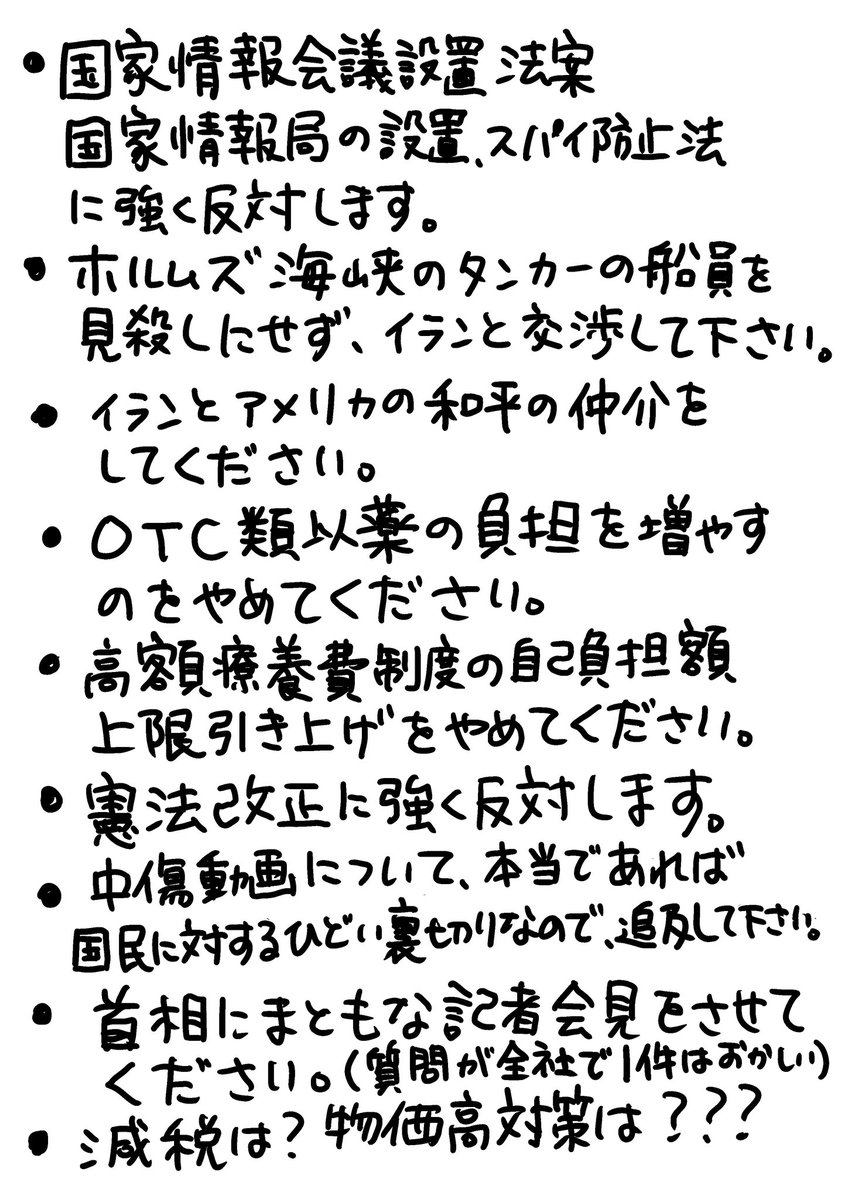 • 国家情報会議設置法案
国家情報局の設置、スパイ防止法
に強く反対します。
• ホルムズ海峡のタンカーの船員を
見殺しにせず、イランと交渉して下さい。
• イランとアメリカの和平の仲介を
してください。
• OTC類以薬の負担を増やす
のをやめてください。
• 高額療養費制度の自己負担額
上限引き上げをやめてください。
• 憲法改正に強く反対します。
• 中傷動画について、本当であれば
国民に対するひどい裏切りなので、追及して下さい。
• 首相にまともな記者会見をさせて
ください。(質問が全社で1件はおかしい)
• 減税は?物価高対策は???